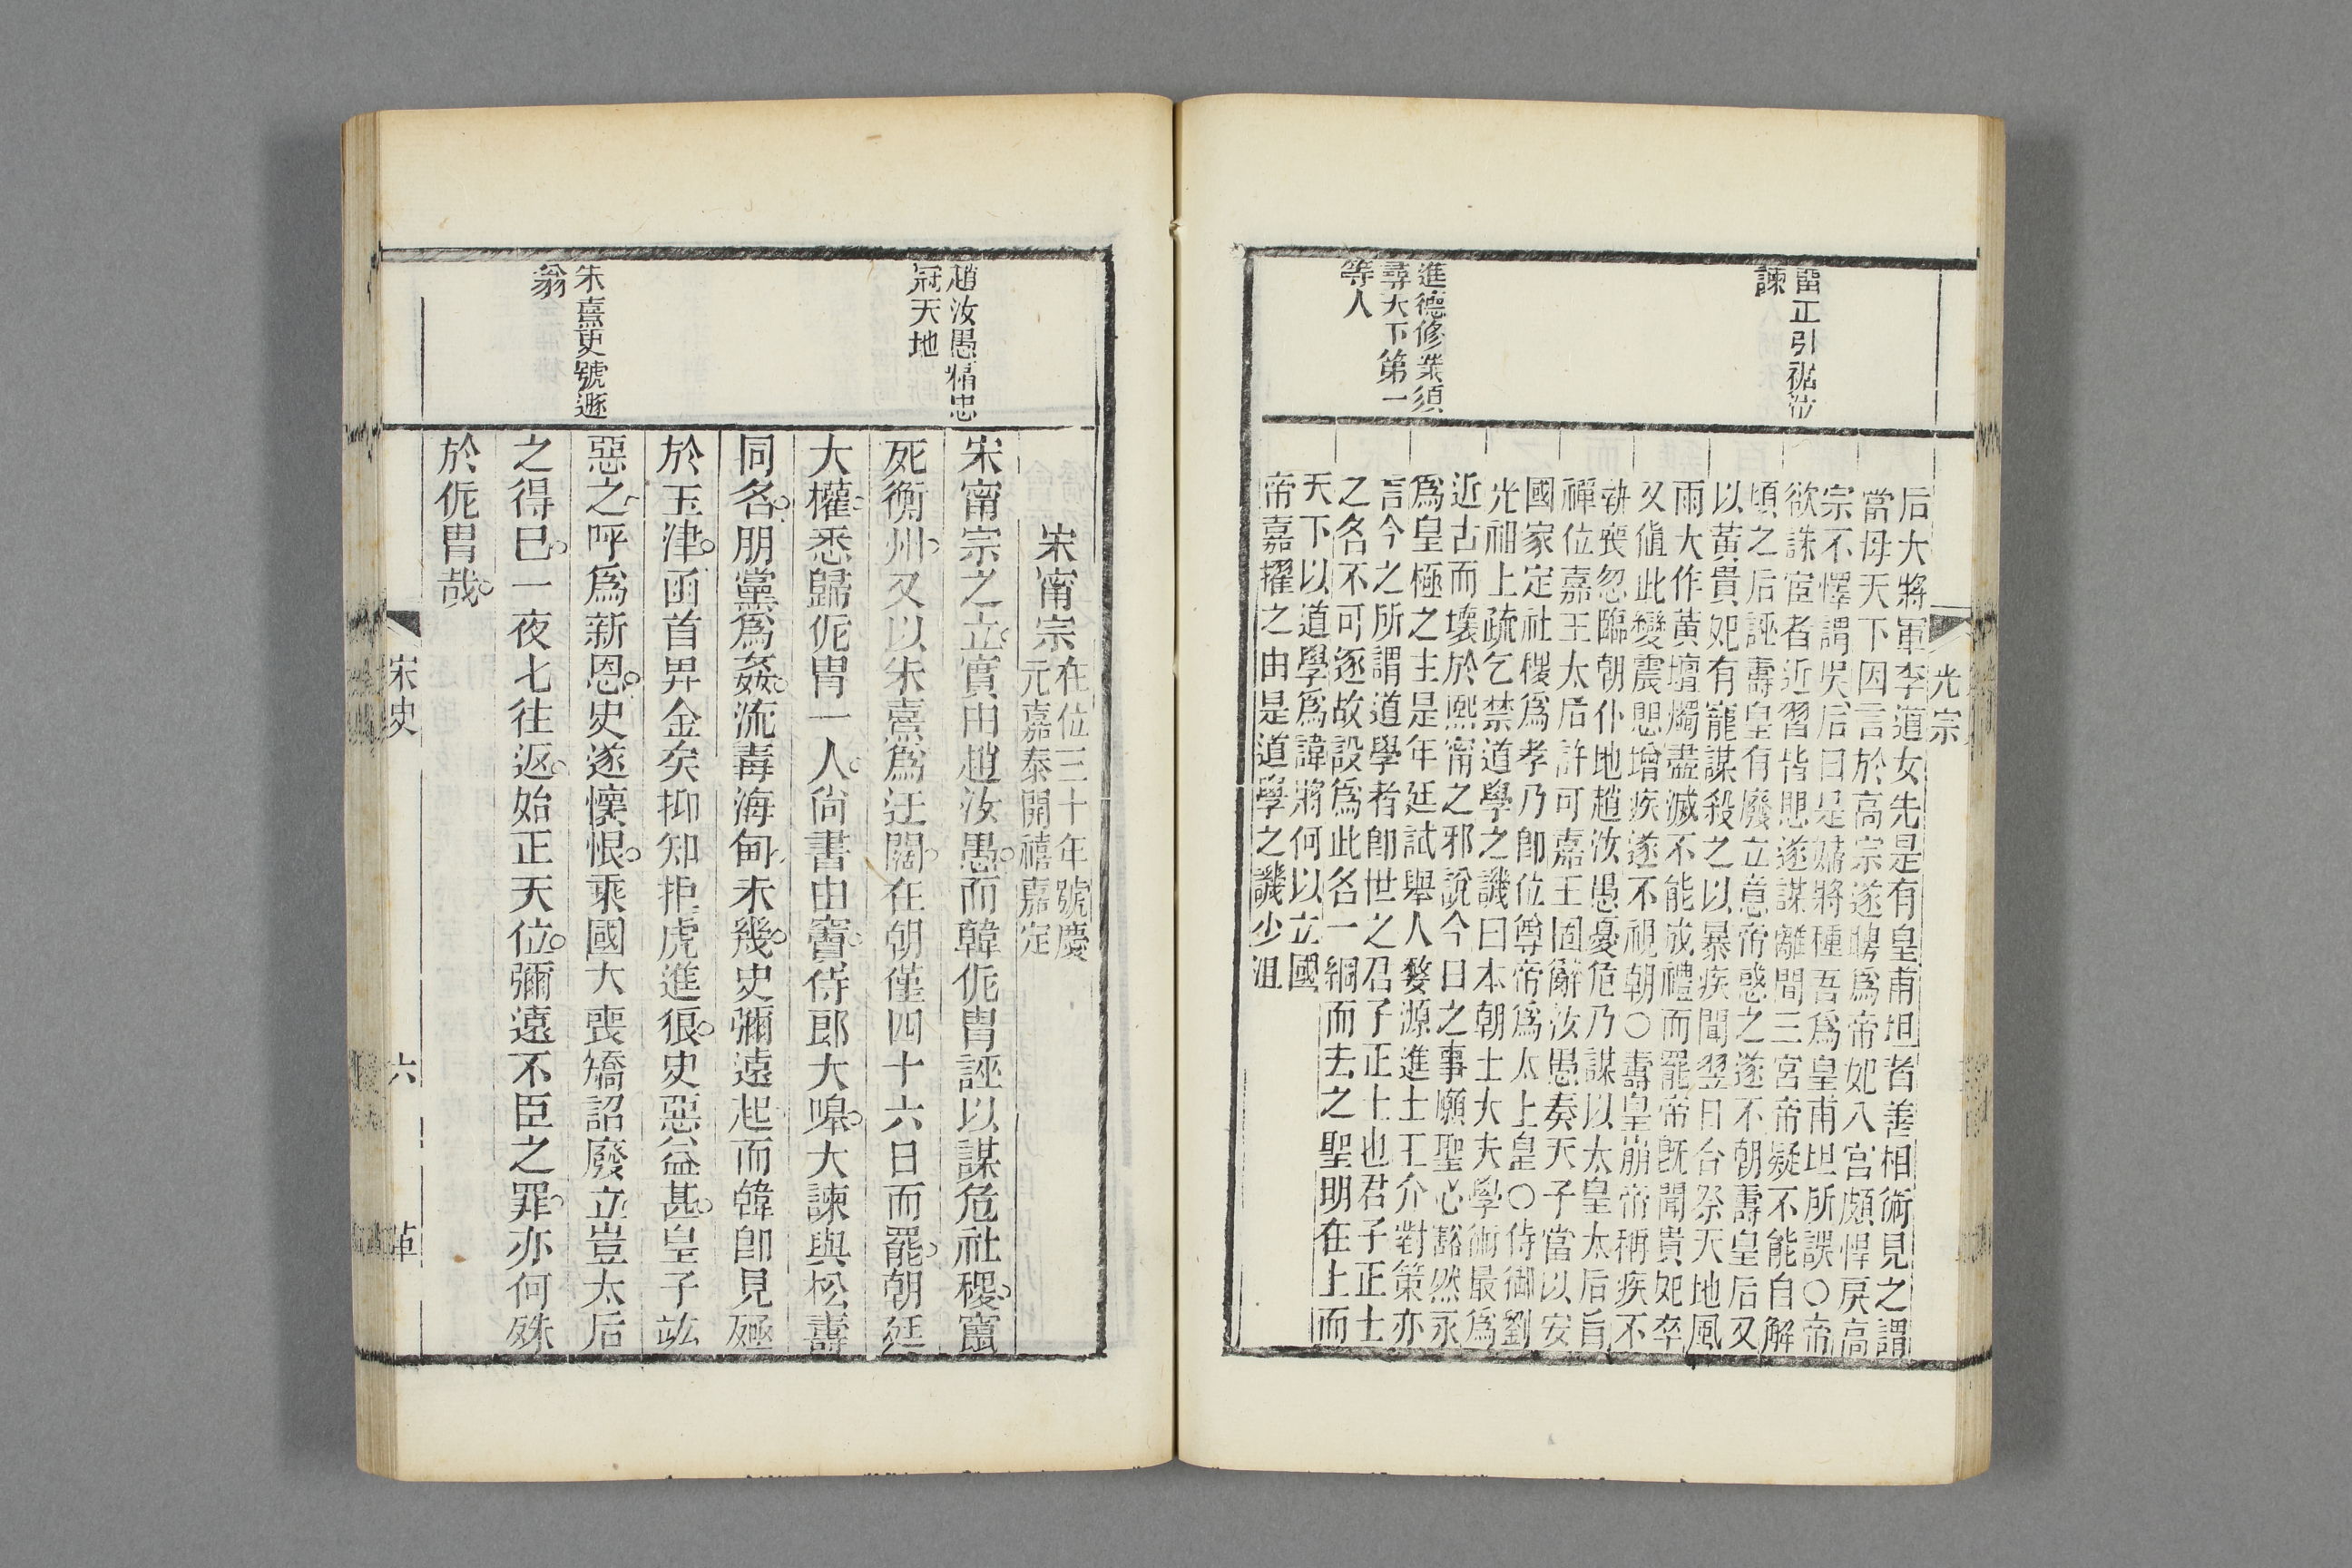 光宗
畱正引裾泣
諫
進德修業須
尋天下第一
等人
后大將軍李道女先是有皇甫坦者善相術見之謂
當母天下因言於高宗遂聘爲帝妃入宮頗悍戾高
宗不懌謂吳后曰是婦將種吾爲皇甫坦所誤○帝
欲誅宦者近習皆愳遂謀離間三宮帝疑不能自解
頃之后誣壽皇有廢立意帝惑之遂不朝壽皇后又
以黃貴妃有寵謀殺之以暴疾聞翌日合祭天地風
雨大作黃壇燭盡滅不能成禮而罷帝旣聞貴妃卒
又值此變震愳增疾遂不視朝○壽皇崩帝稱疾不
執喪忽臨朝仆地趙汝愚憂危乃謀以太皇太后旨
禪位嘉王太后許可嘉王固辭汝愚奏天子當以安
國家定社稷爲孝乃卽位尊帝爲太上皇○侍御劉
光祖上疏乞禁道學之譏曰本朝士大夫學術最爲
近古而壞於熙甯之邪說今日之事願聖心豁然永
爲皇極之主是年廷試舉人婺源進士王介對策亦
言今之所謂道學者卽世之君子正士也君子正士
之名不可逐故設爲此名一網而去之聖明在上而
天下以道學爲諱將何以立國
帝嘉擢之由是道學之譏少沮
趙汝愚精忠
冠天地
朱熹更號遯
翁
宋甯宗在位三十年號慶
元嘉泰開禧嘉定
宋甯宗之立實由趙汝愚而韓侂胄誣以謀危社稷竄
死衡州又以朱熹爲迂闊在朝僅四十六日而罷朝廷
大權悉歸侂胄一人尙書由竇侍郎大嘷大諫與松壽
同名朋黨爲姦流毒海甸未幾史彌遠起而韓卽見殛
於玉津函首畀金矣抑知拒虎進狼史惡益甚皇子竑
惡之呼爲新恩史遂懷恨乘國大喪矯詔廢立豈太后
之得已一夜七往返始正天位彌遠不臣之罪亦何殊
於侂胄哉
宋史
六
革